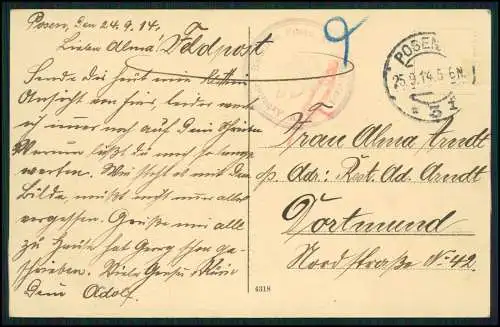 Posen, den 24.9.14.
Lieben Alma! Feldpost
Sende dir heut ein
Ansicht von hier, leider warte
ich immer noch auf dein schreiben
Warum läßt du mich so lange
warten. Wie steht es mit dem
Bilde, nicht
vergessen. Grüße mir alle
zu Hause hat Georg schon ge-
schrieben. Viele Grüße
Dein Adolf
9
POSEN
25.9.14.5-6N.
Frau Alma Arndt
Adr: Rest. Ad. Arndt
Dortmund
Nordstraße No 42.
4318